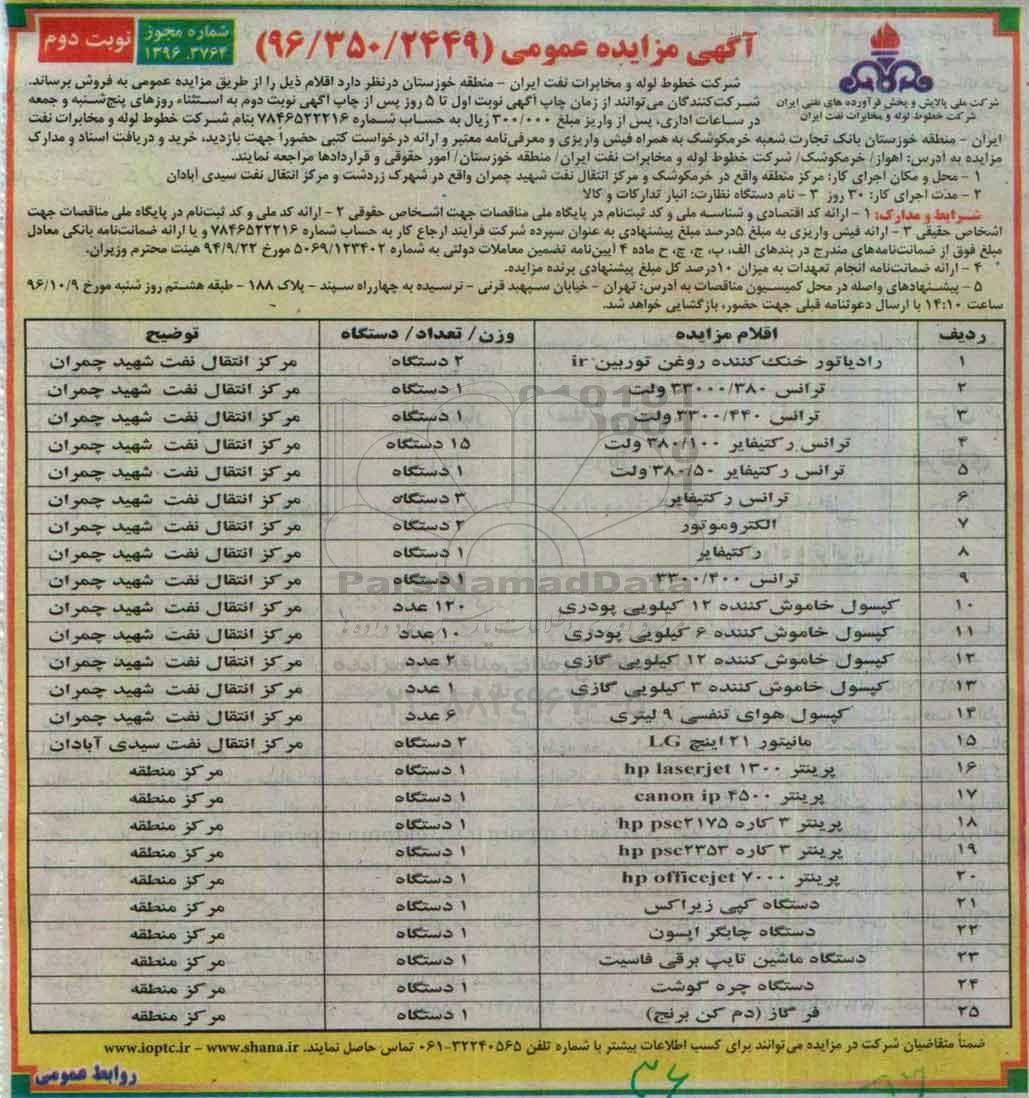 آگهی مزایده عمومی (۹۶/۳۵۰/۲۴۴۹)
شماره مجوز
۱۳۹۶.۳۷۶۴
نوبت دوم
شرکت ملی پالایش و پخش فرآورده های نفتی ایران
شرکت خطوط لوله و مخابرات نفت ایران
شرکت خطوط لوله و مخابرات نفت ایران - منطقه خوزستان درنظر دارد اقلام ذیل را از طریق مزایده عمومی به فروش برساند.
شرکت‌کنندگان می‌توانند از زمان چاپ آگهی نوبت اول تا ۵ روز پس از چاپ آگهی نوبت دوم به استثناء روزهای پنج‌شنبه و جمعه
در ساعات اداری، پس از واریز مبلغ ۳۰۰/۰۰۰ ریال به حساب شماره ۷۸۴۶۵۲۲۲۱۶ بنام شرکت خطوط لوله و مخابرات نفت
ایران - منطقه خوزستان بانک تجارت شعبه خرمکوشک به همراه فیش واریزی و معرفی‌نامه معتبر و ارائه درخواست کتبی حضوراً جهت بازدید، خرید و دریافت اسناد و مدارک
مزایده به آدرس: اهواز/ خرمکوشک/ شرکت خطوط لوله و مخابرات نفت ایران/ منطقه خوزستان/ امور حقوقی و قراردادها مراجعه نمایند.
۱ - محل و مکان اجرای کار: مرکز منطقه واقع در خرمکوشک و مرکز انتقال نفت شهید چمران واقع در شهرک زردشت و مرکز انتقال نفت سیدی آبادان
۲ - مدت اجرای کار: ۳۰ روز ۳ - نام دستگاه نظارت: انبار تدارکات و کالا
شرایط و مدارک: ۱ - ارائه کد اقتصادی و شناسه ملی و کد ثبت‌نام در پایگاه ملی مناقصات جهت اشخاص حقوقی ۲ - ارائه کد ملی و کد ثبت‌نام در پایگاه ملی مناقصات جهت
اشخاص حقیقی ۳ - ارائه فیش واریزی به مبلغ ۵درصد مبلغ پیشنهادی به عنوان سپرده شرکت فرآیند ارجاع کار به حساب شماره ۷۸۴۶۵۲۲۲۱۶ و یا ارائه ضمانت‌نامه بانکی معادل
مبلغ فوق از ضمانت‌نامه‌های مندرج در بندهای الف، پ، ج، چ، ح ماده ۴ آیین‌نامه تضمین معاملات دولتی به شماره ۵۰۶۹/۱۲۳۴۰۲ مورخ ۹۴/۹/۲۲ هیئت محترم وزیران.
۴ - ارائه ضمانت‌نامه انجام تعهدات به میزان ۱۰درصد کل مبلغ پیشنهادی برنده مزایده.
۵ - پیشنهادهای واصله در محل کمیسیون مناقصات به آدرس: تهران - خیابان سپهبد قرنی - نرسیده به چهارراه سپند - پلاک ۱۸۸ - طبقه هشتم روز شنبه مورخ ۹۶/۱۰/۹
ساعت ۱۴:۱۰ با ارسال دعوتنامه قبلی جهت حضور، بازگشایی خواهد شد.
ردیف اقلام مزایده وزن/ تعداد/ دستگاه توضیح
۱ رادیاتور خنک‌کننده روغن توربین ir ۲ دستگاه مرکز انتقال نفت شهید چمران
۲ ترانس ۳۳۰۰۰/۳۸۰ ولت ۱ دستگاه مرکز انتقال نفت شهید چمران
۳ ترانس ۳۳۰۰/۴۴۰ ولت ۱ دستگاه مرکز انتقال نفت شهید چمران
۴ ترانس رکتیفایر ۳۸۰/۱۰۰ ولت ۱۵ دستگاه مرکز انتقال نفت شهید چمران
۵ ترانس رکتیفایر ۳۸۰/۵۰ ولت ۱ دستگاه مرکز انتقال نفت شهید چمران
۶ ترانس رکتیفایر ۳ دستگاه مرکز انتقال نفت شهید چمران
۷ الکتروموتور ۲ دستگاه مرکز انتقال نفت شهید چمران
۸ رکتیفایر ۱ دستگاه مرکز انتقال نفت شهید چمران
۹ ترانس ۳۳۰۰/۴۰۰ ۱ دستگاه مرکز انتقال نفت شهید چمران
۱۰ کپسول خاموش‌کننده ۱۲ کیلویی پودری ۱۲۰ عدد مرکز انتقال نفت شهید چمران
۱۱ کپسول خاموش‌کننده ۶ کیلویی پودری ۱۰ عدد مرکز انتقال نفت شهید چمران
۱۲ کپسول خاموش‌کننده ۱۲ کیلویی گازی ۲ عدد مرکز انتقال نفت شهید چمران
۱۳ کپسول خاموش‌کننده ۳ کیلویی گازی ۱ عدد مرکز انتقال نفت شهید چمران
۱۴ کپسول هوای تنفسی ۹ لیتری ۶ عدد مرکز انتقال نفت شهید چمران
۱۵ مانیتور ۲۱ اینچ LG ۲ دستگاه مرکز انتقال نفت سیدی آبادان
۱۶ پرینتر hp laserjet ۱۳۰۰ ۱ دستگاه مرکز منطقه
۱۷ پرینتر canon ip ۴۵۰۰ ۱ دستگاه مرکز منطقه
۱۸ پرینتر ۳ کاره hp psc۲۱۷۵ ۱ دستگاه مرکز منطقه
۱۹ پرینتر ۳ کاره hp psc۲۳۵۳ ۱ دستگاه مرکز منطقه
۲۰ پرینتر hp officejet ۷۰۰۰ ۱ دستگاه مرکز منطقه
۲۱ دستگاه کپی زیراکس ۱ دستگاه مرکز منطقه
۲۲ دستگاه چاپگر اپسون ۱ دستگاه مرکز منطقه
۲۳ دستگاه ماشین تایپ برقی فاسیت ۱ دستگاه مرکز منطقه
۲۴ دستگاه چره گوشت ۱ دستگاه مرکز منطقه
۲۵ فر گاز (دم کن برنج) ۱ دستگاه مرکز منطقه
ParsNamadData
ضمناً متقاضیان شرکت در مزایده می‌توانند برای کسب اطلاعات بیشتر با شماره تلفن ۳۲۲۴۰۵۶۵-۰۶۱ تماس حاصل نمایند. www.ioptc.ir - www.shana.ir
روابط عمومی